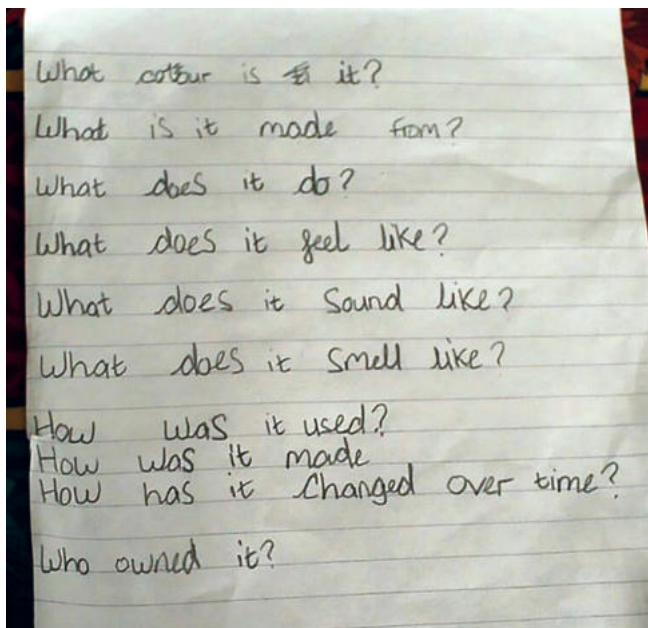 What colour is it?
What is it made from?
What does it do?
What does it feel like?
What does it Sound like?
What does it Smell like?
How was it used?
How was it made
How has it changed over time?
Who owned it?